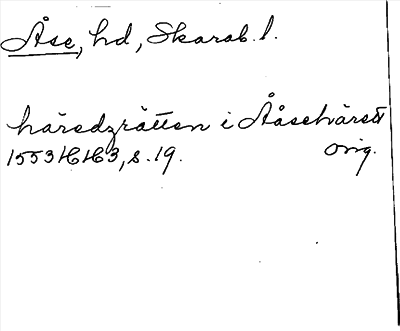 Åse, hd, Skarab. l.
häredzrätten i Ååsehärett
1553 HH3, s. 19. orig.